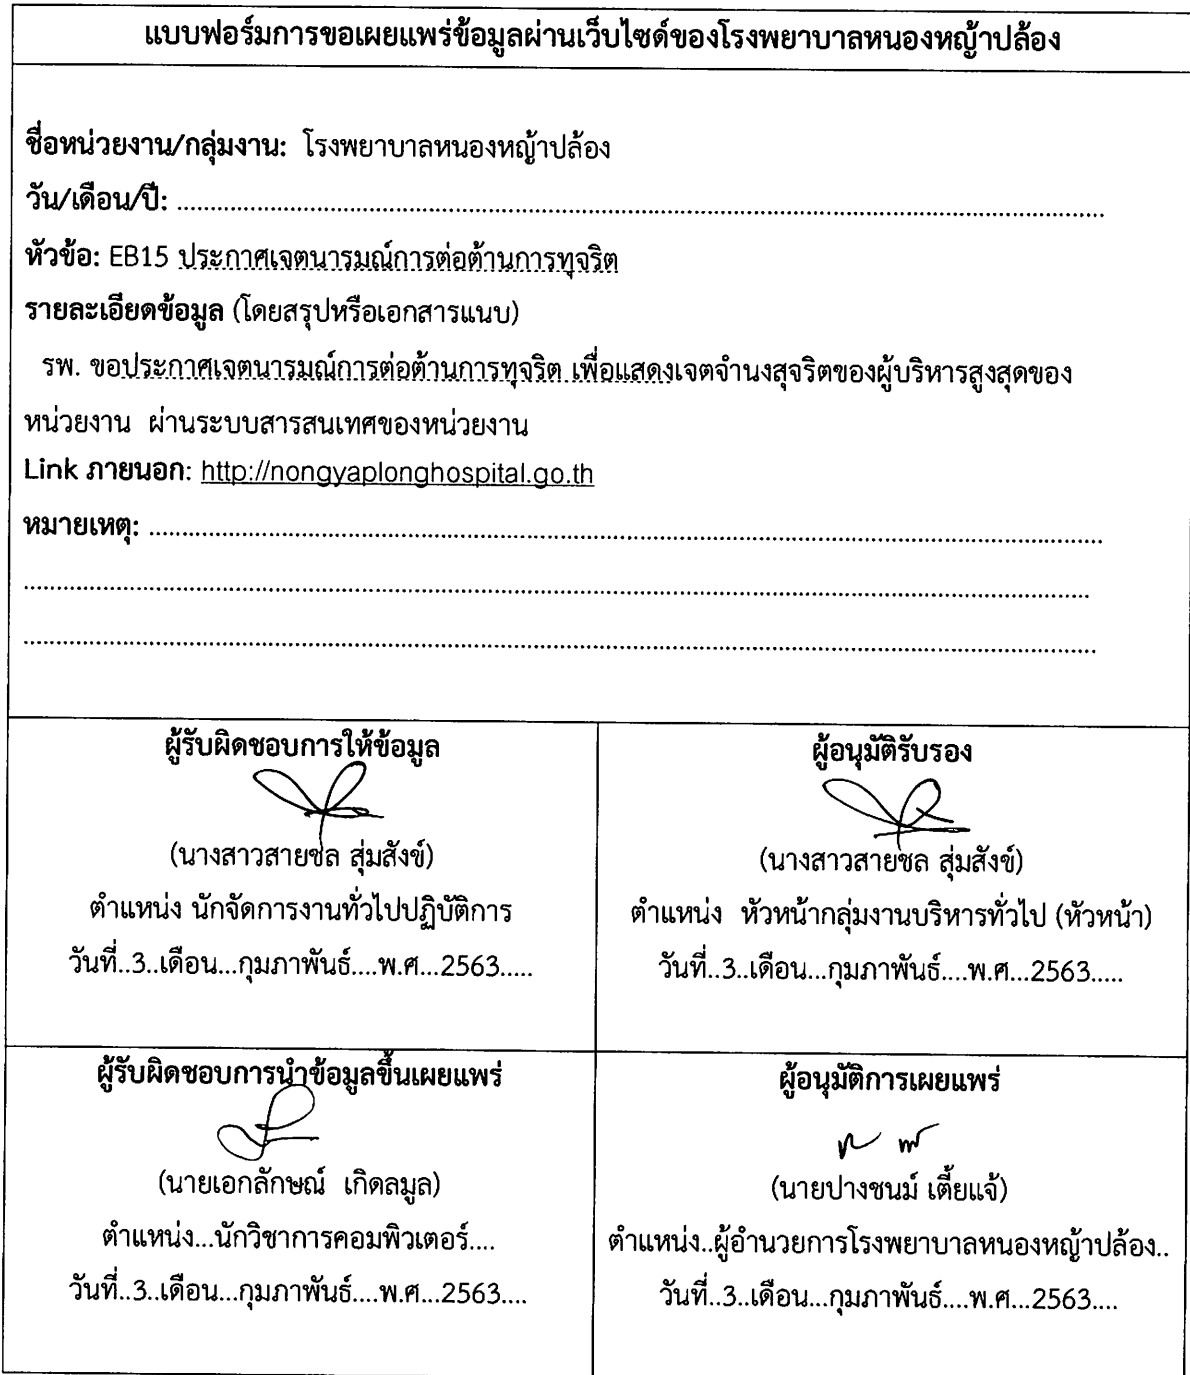 แบบฟอร์มการขอเผยแพร่ข้อมูลผ่านเว็บไซด์ของโรงพยาบาลหนองหญ้าปล้อง
ชื่อหน่วยงาน/กลุ่มงาน: โรงพยาบาลหนองหญ้าปล้อง
วัน/เดือน/ปี: ................................................................................
หัวข้อ: EB15 ประกาศเจตนารมณ์การต่อต้านการทุจริต
รายละเอียดข้อมูล (โดยสรุปหรือเอกสารแนบ)
รพ. ขอประกาศเจตนารมณ์การต่อต้านการทุจริต เพื่อแสดงเจตจำนงสุจริตของผู้บริหารสูงสุดของ
หน่วยงาน ผ่านระบบสารสนเทศของหน่วยงาน
Link ภายนอก: http://nongyaplonghospital.go.th
หมายเหตุ: ................................................................................
................................................................................
................................................................................
ผู้รับผิดชอบการให้ข้อมูล
(นางสาวสายชล สุ่มสังข์)
ตำแหน่ง นักจัดการงานทั่วไปปฏิบัติการ
วันที่..3..เดือน...กุมภาพันธ์....พ.ศ...2563.....
ผู้อนุมัติรับรอง
(นางสาวสายชล สุ่มสังข์)
ตำแหน่ง หัวหน้ากลุ่มงานบริหารทั่วไป (หัวหน้า)
วันที่..3..เดือน...กุมภาพันธ์....พ.ศ...2563.....
ผู้รับผิดชอบการนำข้อมูลขึ้นเผยแพร่
(นายเอกลักษณ์ เกิดลมูล)
ตำแหน่ง...นักวิชาการคอมพิวเตอร์....
วันที่..3..เดือน...กุมภาพันธ์....พ.ศ...2563....
ผู้อนุมัติการเผยแพร่
(นายปางชนม์ เตี้ยแจ้)
ตำแหน่ง..ผู้อำนวยการโรงพยาบาลหนองหญ้าปล้อง..
วันที่..3..เดือน...กุมภาพันธ์....พ.ศ...2563....